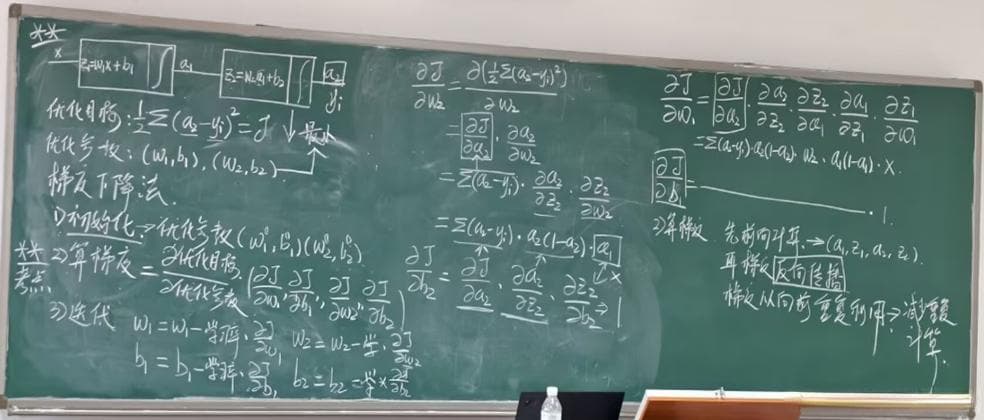 **
x z₁=w₁x+b₁ ∫ a₁ z₂=w₂a₁+b₂ ∫ a₂
yᵢ
优化目标: ½Σ(a₂-yᵢ)²=J ↓最小
优化参数: (w₁,b₁), (w₂,b₂)
梯度下降法.
1)初始化→优化参数(w₁⁰,b₁⁰)(w₂⁰,b₂⁰)
** 考点 2)算梯度=∂优化目标/∂优化参数 (∂J/∂w₁, ∂J/∂b₁, ∂J/∂w₂, ∂J/∂b₂)
3)迭代 w₁=w₁-学习率·∂J/∂w₁ w₂=w₂-学·∂J/∂w₂
b₁=b₁-学习率·∂J/∂b₁ b₂=b₂-学×∂J/∂b₂
∂J/∂w₂=∂(½Σ(a₂-yᵢ)²)/∂w₂
=∂J/∂a₂·∂a₂/∂w₂
=Σ(a₂-yᵢ)·∂a₂/∂z₂·∂z₂/∂w₂
=Σ(a₂-yᵢ)·a₂(1-a₂)·a₁
↓x
∂J/∂b₂=∂J/∂a₂·∂a₂/∂z₂·∂z₂/∂b₂→1
∂J/∂w₁=∂J/∂a₂·∂a₂/∂z₂·∂z₂/∂a₁·∂a₁/∂z₁·∂z₁/∂w₁
=Σ(a₂-y)·a₂(1-a₂)·w₂·a₁(1-a₁)·x.
∂J/∂b₁=————·1.
2)算梯度 先前向计算→(a₁,z₁,a₂,z₂).
算梯度反向传播
梯度从向前重复利用→减少重复
计算.